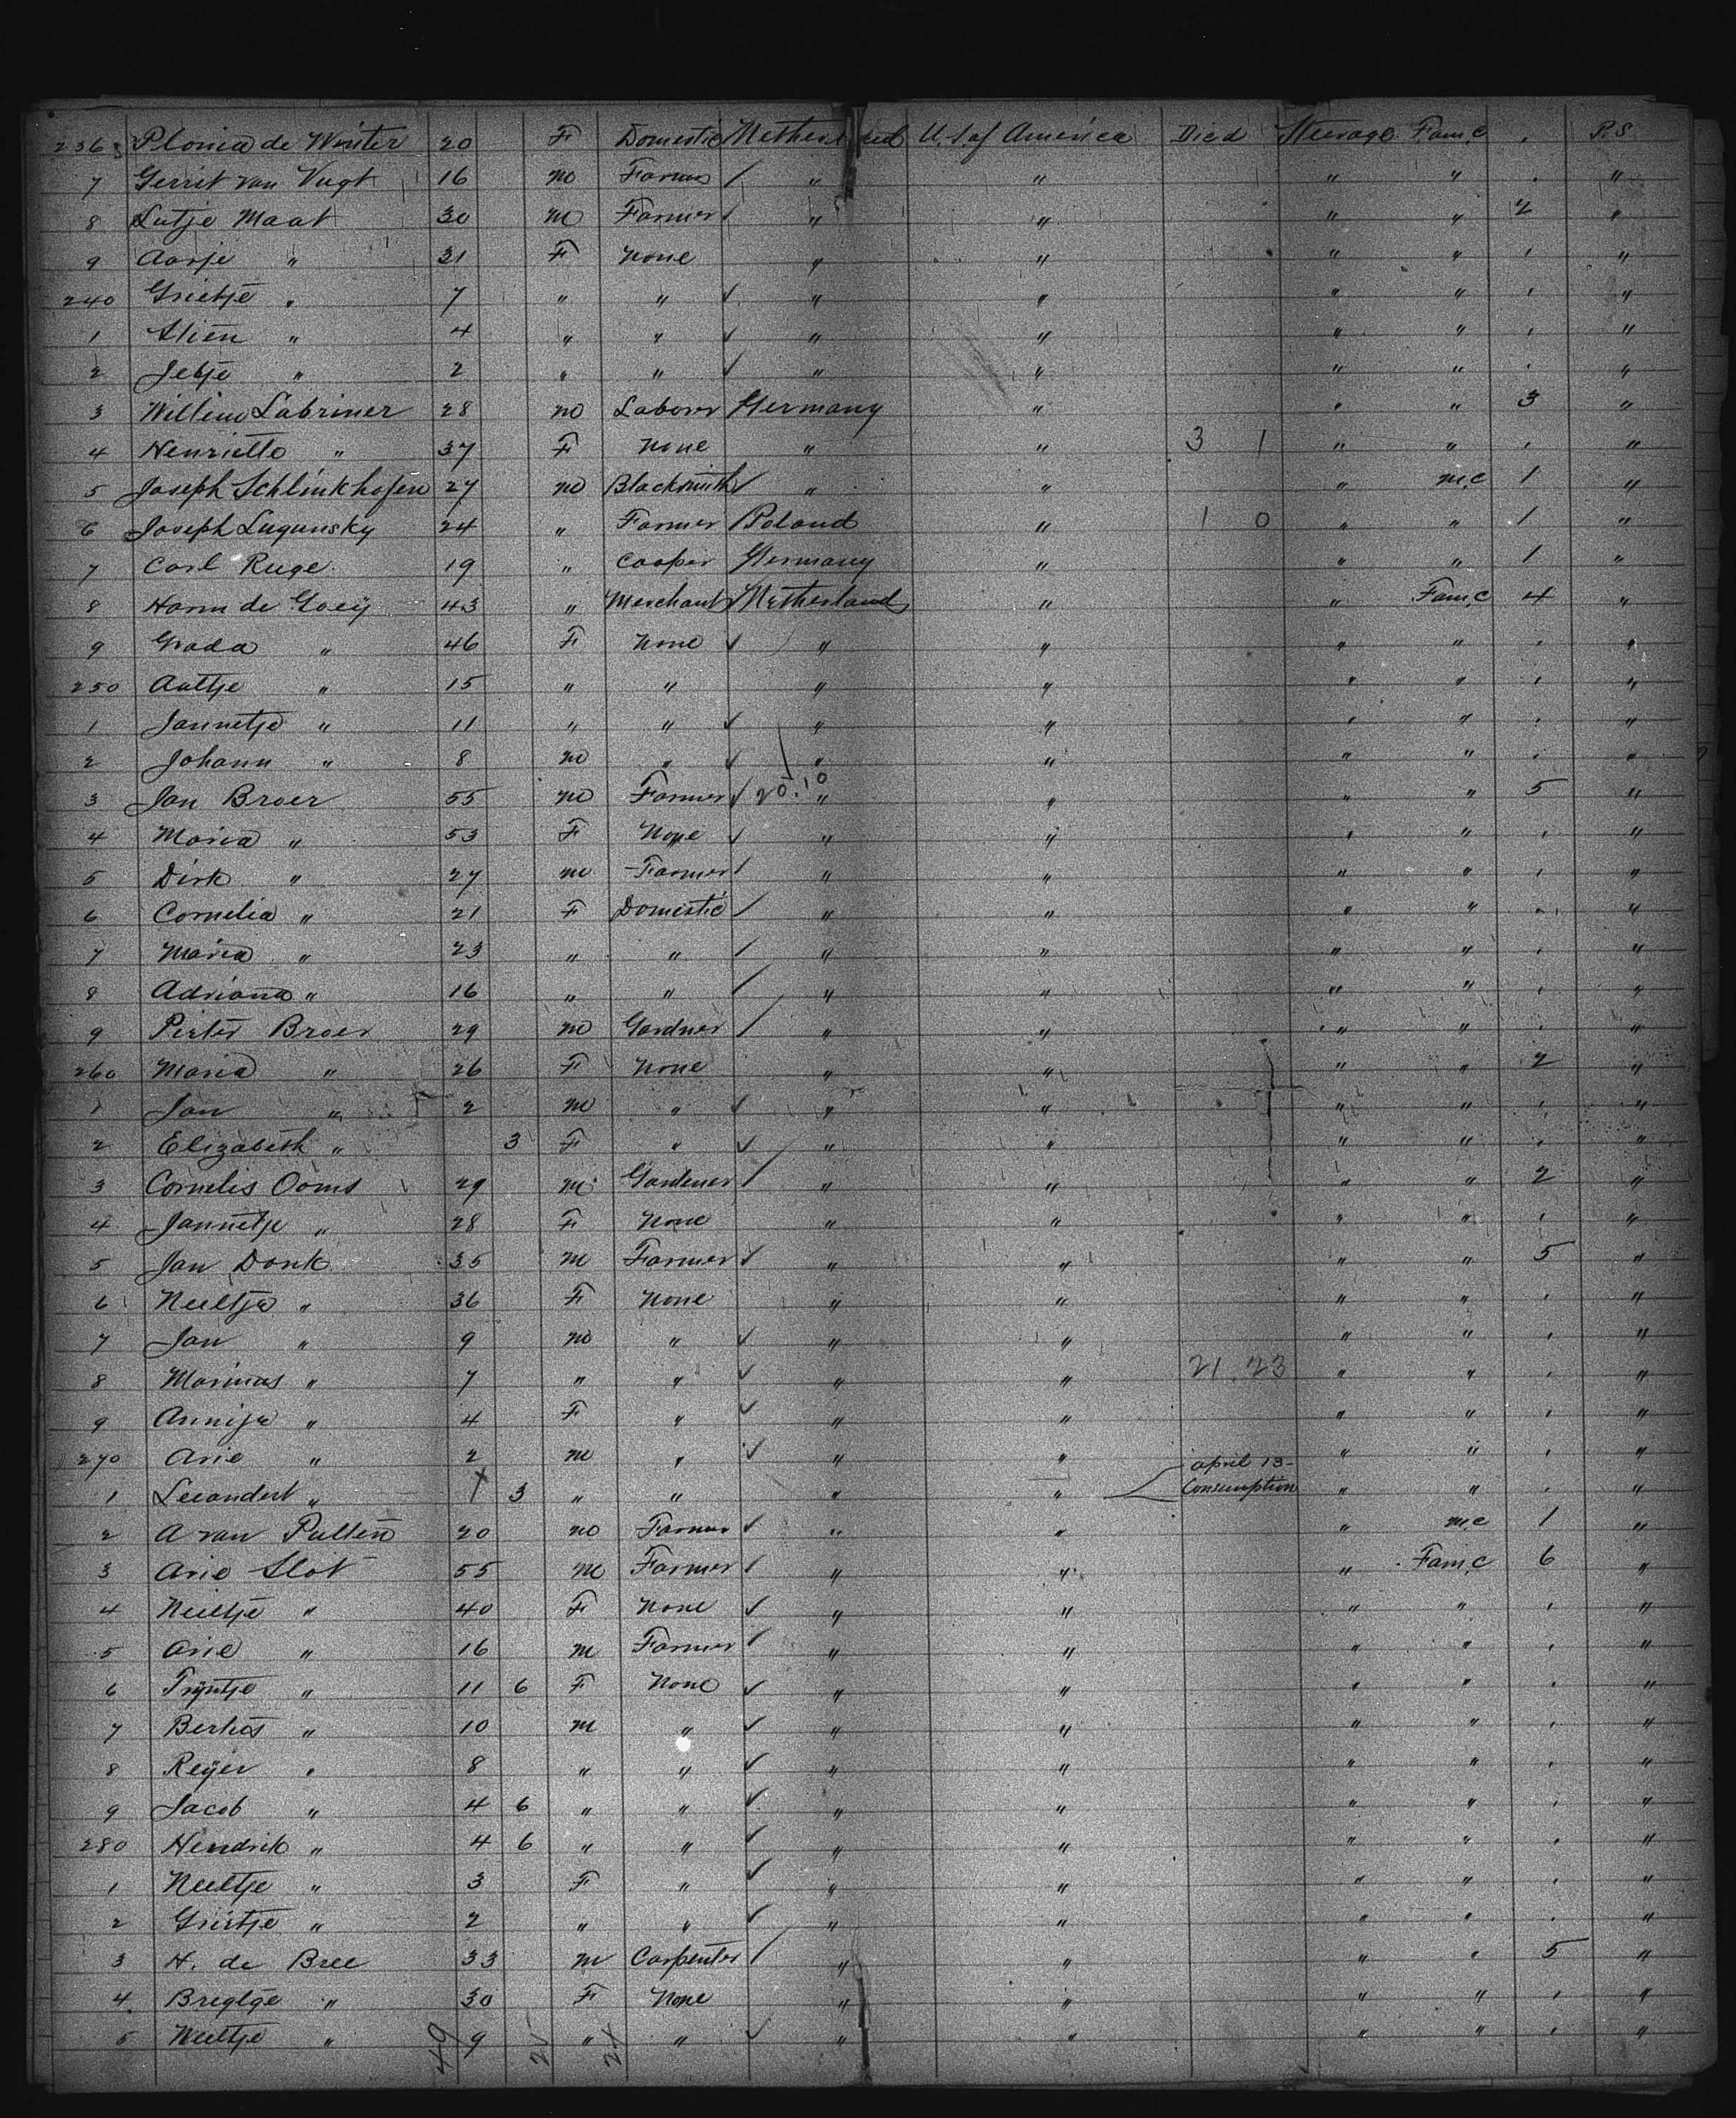 236 Plonia de Winter 20 F Domestic Netherland U.S. of America Died Steerage Fam,c . P.S
7 Gerrit van Vugt 16 m Farmer / " " " " . "
8 Lutje Maat 30 m Farmer / " " " " 2 "
9 Aarje " 31 F None " " " " , "
240 Grietje " 7 " " ✓ " " " " , "
1 Stien " 4 " " ✓ " " " " , "
2 Jetje " 2 " " ✓ " " " " . "
3 Willem Labriner 28 m Laborer Germany " " " 3 "
4 Henrietto " 37 F None " " 3 1 " " , "
5 Joseph Schlinkhofen 27 m Blacksmith ✓ " " " m,c 1 "
6 Joseph Lugunsky 24 " Farmer Poland " 1 0 " " 1 "
7 Carl Ruge 19 " Cooper Germany " " " 1 "
8 Harm de Goeij 43 " Merchant Netherland " " Fam,c 4 "
9 Grada " 46 F None ✓ " " " " , "
250 Aaltje " 15 " " " " " " , "
1 Jannetje " 11 " " ✓ " " " " , "
2 Johann " 8 m " ✓ " " " " . "
3 Jan Broer 55 m Farmer ✓ 20.10 " " " " 5 "
4 Maria " 53 F None ✓ " " " " , "
5 Dirk " 27 m Farmer / " " " " , "
6 Cornelia " 21 F Domestic / " " " " , "
7 Maria " 23 " " / " " " " , "
8 Adriana " 16 " " / " " " " , "
9 Pieter Broer 29 m Gardner / " " " " , "
260 Maria " 26 F None " " " " 2 "
1 Jan " 2 m " ✓ " " " " , "
2 Elizabeth " 3 F " ✓ " " " " , "
3 Cornelis Ooms 29 m Gardener / " " " " 2 "
4 Jannetje " 28 F None " " " " , "
5 Jan Donk 35 m Farmer ✓ " " " " 5 "
6 Neeltje " 36 F None " " " " , "
7 Jan " 9 m " ✓ " " " " , "
8 Marinus " 7 " " ✓ " " 21.23 " " , "
9 Annija " 4 F " ✓ " " " " , "
270 Arie " 2 m " ✓ " " " " , "
april 13-
1 Leeandert " 3 " " " " Consumption " " , "
2 A van Putten 20 m Farmer ✓ " " " m,c 1 "
3 Arie Slot 55 m Farmer / " " " Fam,c 6 "
4 Neeltje " 40 F None ✓ " " " " , "
5 Arie " 16 m Farmer / " " " " , "
6 Trijntje " 11 6 F None ✓ " " " " , "
7 Bertus " 10 m " ✓ " " " " , "
8 Reijer " 8 " " ✓ " " " " , "
9 Jacob " 4 6 " " ✓ " " " " , "
280 Hendrik " 4 6 " " ✓ " " " " , "
1 Neeltje " 3 F " ✓ " " " " , "
2 Grietje " 2 " " ✓ " " " " . "
3 H. de Bree 33 m Carpenter / " " " " 5 "
4 Bregtge " 30 F None " " " " , "
5 Neeltje " 9 " " ✓ " " " " , "
49 25 24